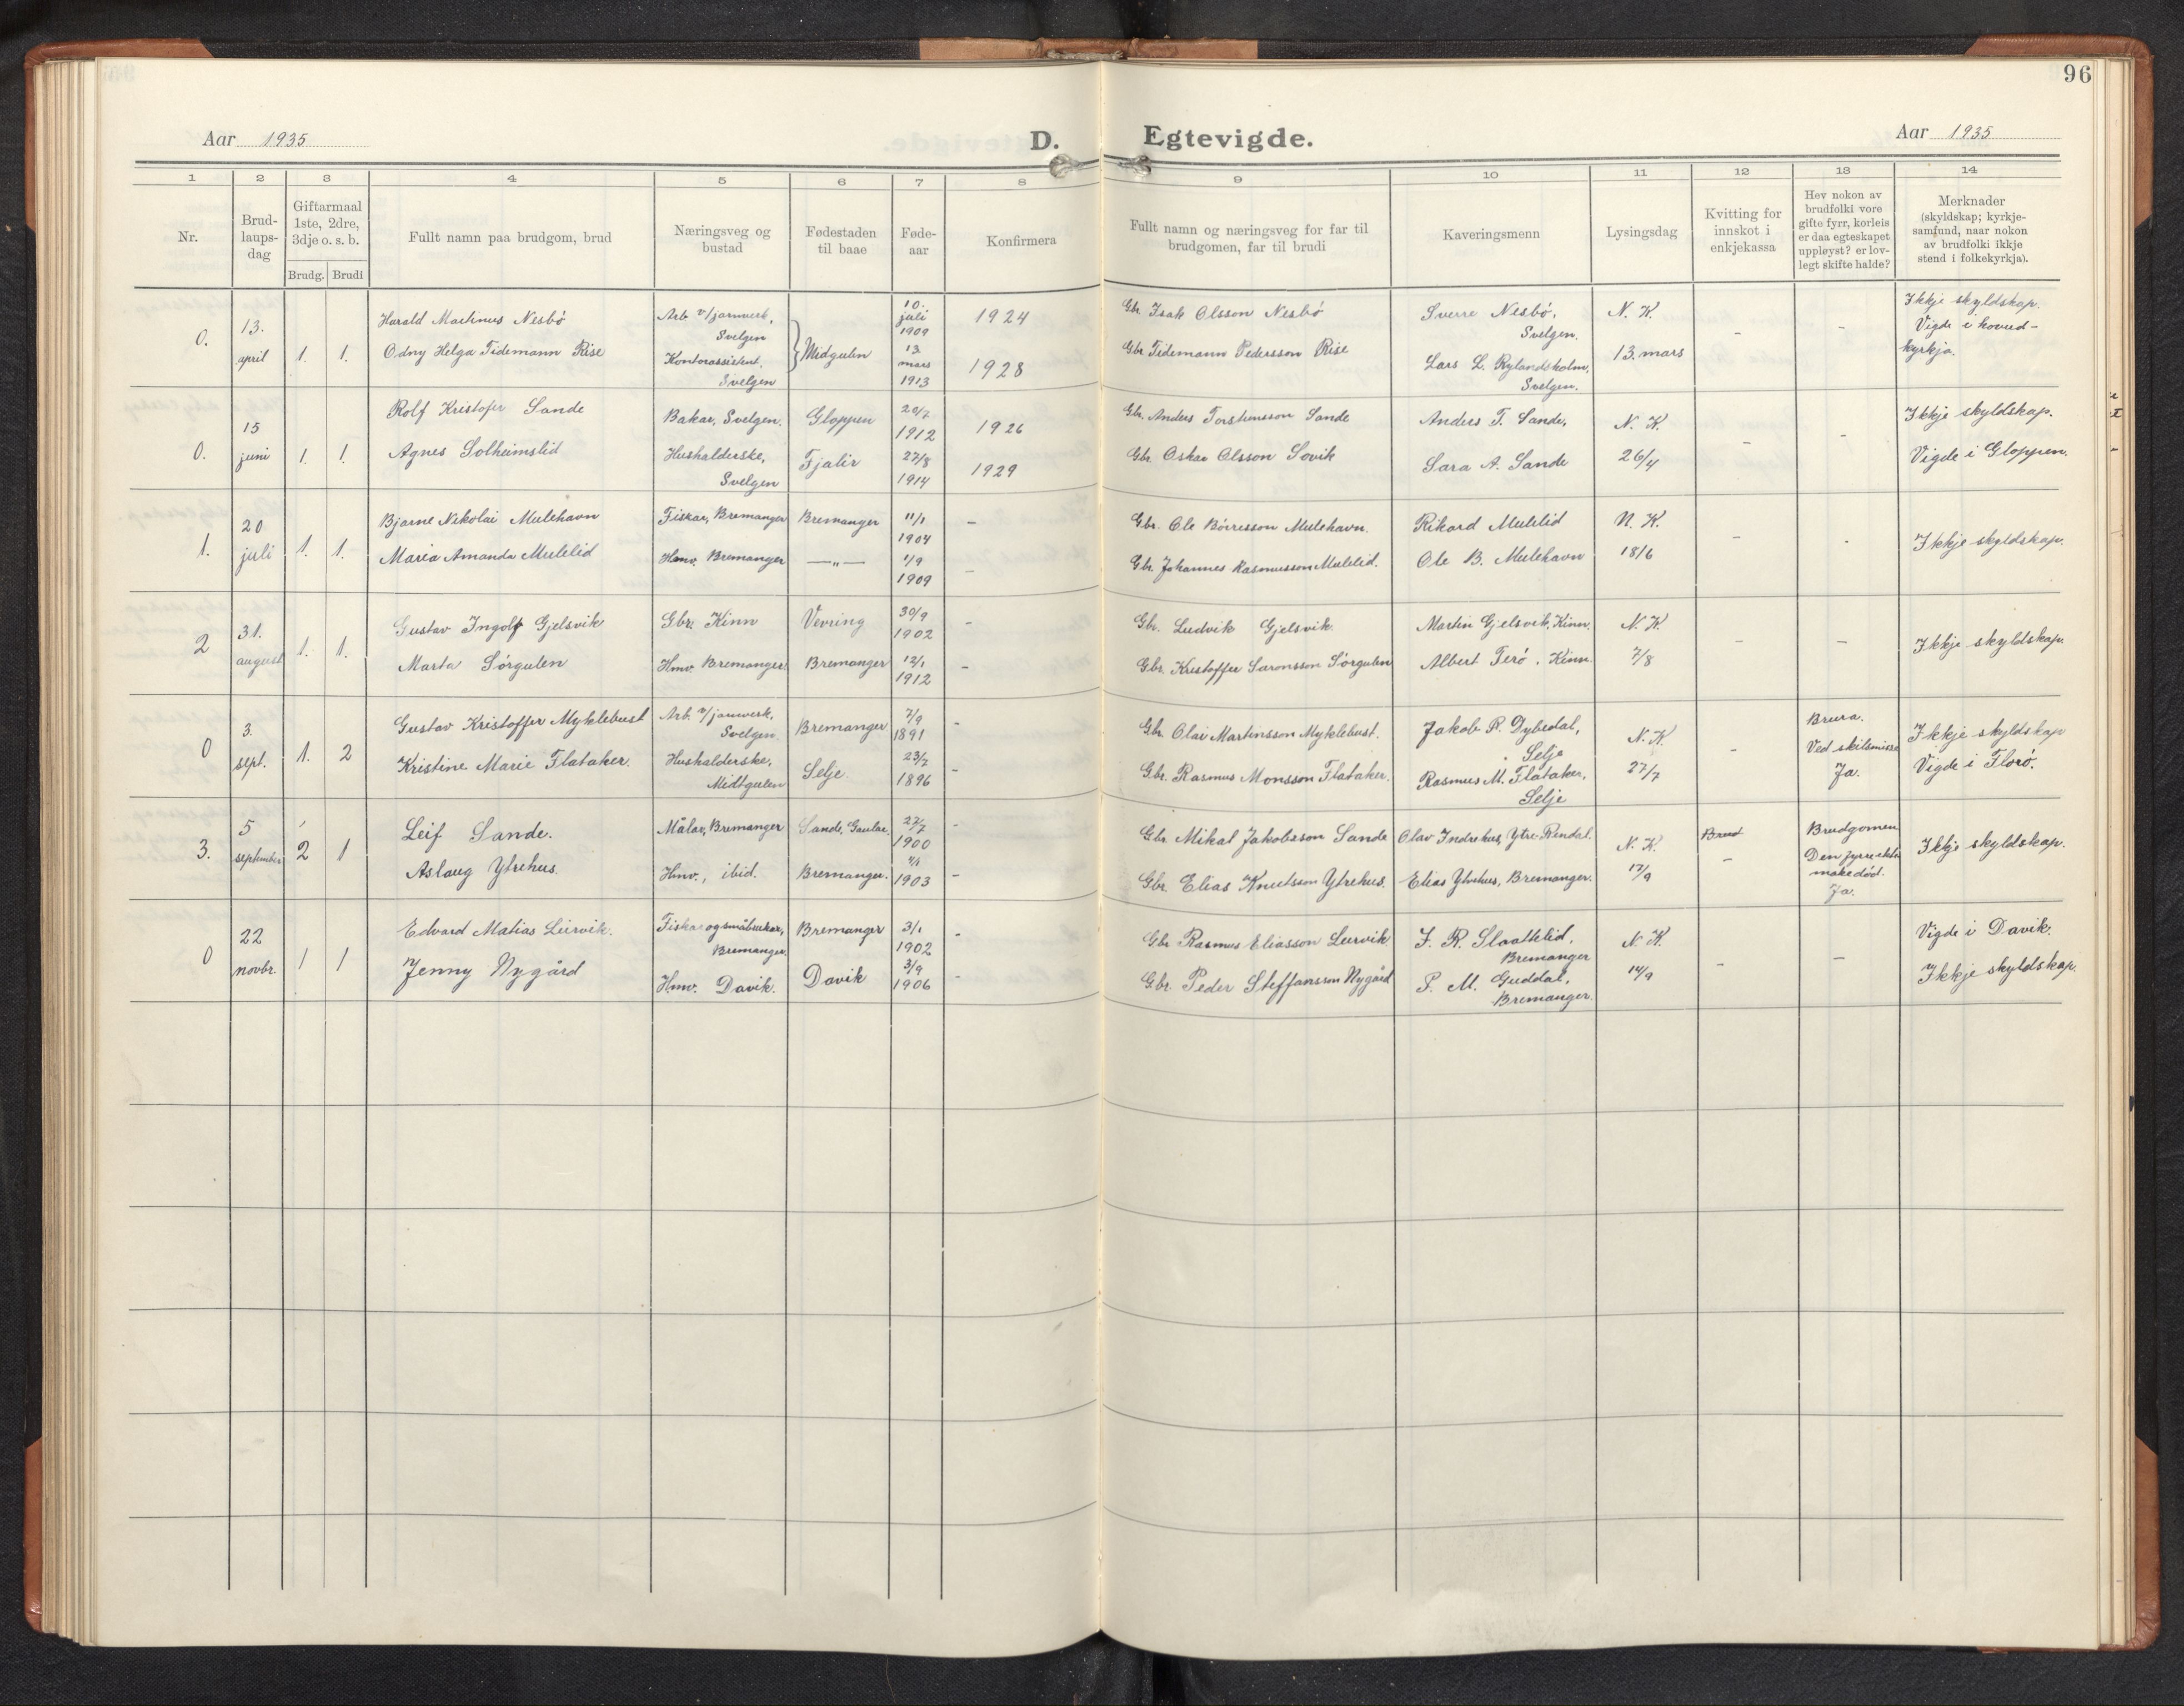 96
Aar 1935
D.
Egtevigde.
Aar 1935
1 2 3 4 5 6 7 8 9 10 11 12 13 14
Nr.
Brud-
laups-
dag
Giftarmaal
1ste, 2dre,
3dje o. s. b.
Brudg. Brudi
Fullt namn paa brudgom, brud
Næringsveg og
bustad
Fødestaden
til baae
Føde-
aar
Konfirmera
Fullt namn og næringsveg for far til
brudgomen, far til brudi
Kaveringsmenn
Lysingsdag
Kvitting for
innskot i
enkjekassa
Hev nokon av
brudfolki vore
gifte fyrr, korleis
er daa egteskapet
uppløyst? er lov-
legt skifte halde?
Merknader
(skyldskap; kyrkje-
samfund, naar nokon
av brudfolki ikkje
stend i folkekyrkja).
0.
13.
april
1. 1.
Harald Martinus Nesbö
Odny Helga Tidemann Rise
Arb. v/jarnverk,
Svelgen
Kontorassistent,
Svelgen
Midgulen
10.
juli
1909
13.
mars
1913
1924
1928
Gbr. Isak Olsson Nesbö
Gbr. Tidemann Pedersson Rise
Sverre Nesbö,
Svelgen.
Lars L. Rylandsholm,
Svelgen.
N. K.
13. mars
-
-
Ikkje skyldskap.
Vigde i hovud-
kyrkja.
0.
15
juni
1. 1.
Rolf Kristofer Sande
Agnes Solheimslid
Bakar, Svelgen.
Hushalderske,
Svelgen
Gloppen
Fjalir
20/7
1912
27/8
1914
1926
1929
Gbr. Anders Torsteinsson Sande
Gbr. Oskar Olsson Sovik
Anders T. Sande,
Sara A. Sande
N. K.
26/4
-
-
Ikkje skyldskap.
Vigde i Gloppen.
1.
20
juli
1. 1.
Bjarne Nikolai Mulehavn
Maria Amanda Mulelid
Fiskar, Bremanger
Hmv. Bremanger
Bremanger
—„—
11/1
1904
1/9
1909
-
-
Gbr. Ole Börresson Mulehavn.
Gbr. Johannes Rasmusson Mulelid.
Rikard Mulelid
Ole B. Mulehavn
N. K.
18/6
-
-
Ikkje skyldskap.
2
31.
august
1. 1.
Gustav Ingolf Gjelsvik
Marta Sörgulen
Gbr. Kinn
Hmv. Bremanger
Vevring
Bremanger
30/9
1902
12/1
1912
-
-
Gbr. Ludvik Gjelsvik.
Gbr. Kristoffer Saronsson Sörgulen
Martin Gjelsvik, Kinn.
Albert Terö, Kinn.
N. K.
7/8
-
-
Ikkje skyldskap.
0
3.
sept.
1. 2
Gustav Kristoffer Myklebust
Kristine Marie Flataker.
Arb. v/jarnverk,
Svelgen.
Hushalderske,
Midtgulen
Bremanger
Selje
7/9
1891
23/7
1896
-
-
Gbr. Olai Martinsson Myklebust.
Gbr. Rasmus Monsson Flataker.
Jakob R. Dybedal,
Selje
Rasmus M. Flataker,
Selje
N. K.
27/7
-
Brura.
Ved skilsmisse
Ja.
Ikkje skyldskap
Vigde i Florö.
3.
5
september
2 1
Leif Sande.
Aslaug Ytrehus.
Målar, Bremanger
Hmv., ibid.
Sande, Gaular.
Bremanger.
27/7
1900
1903
-
-
Gbr. Mikal Jakobsson Sande
Gbr. Elias Knutsson Ytrehus.
Olav Indrehus, Ytre Rendal.
Elias Ytrehus, Bremanger.
N. K.
Brud
-
Brudgomen
Den fyrre ekte
make död.
Ja.
Ikkje skyldskap.
0
22
novbr.
1 1
Edvard Matias Leirvik.
Jenny Nygård
Fiskar og småbrukar,
Bremanger.
Hmv. Davik.
Bremanger
Davik
3/1
1902
3/9
1906
-
-
Gbr. Rasmus Eliasson Leirvik
Gbr. Peder Steffansson Nygård
J. R. Slaattelid,
Bremanger
P. M. Guddal,
Bremanger.
N. K.
14/9
-
-
Vigde i Davik.
Ikkje skyldskap.